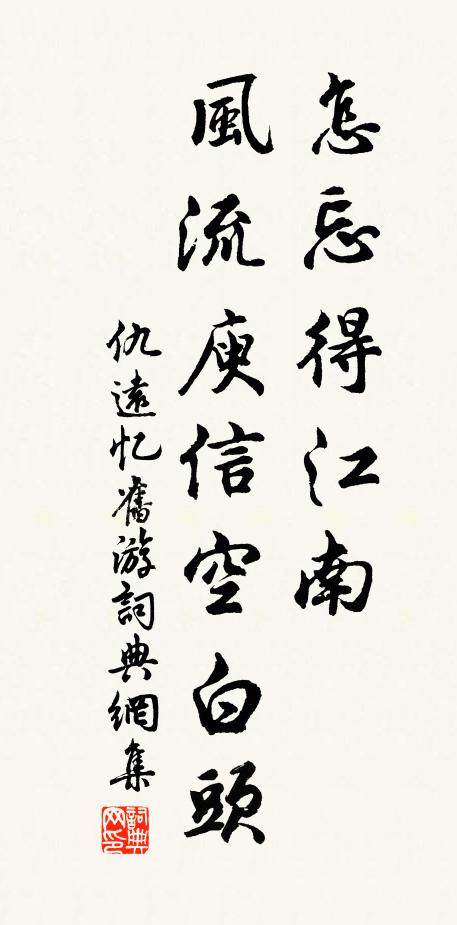 怎忘得江南
風流庾信空白頭
仇遠忆舊游詞典網集
詞典网印